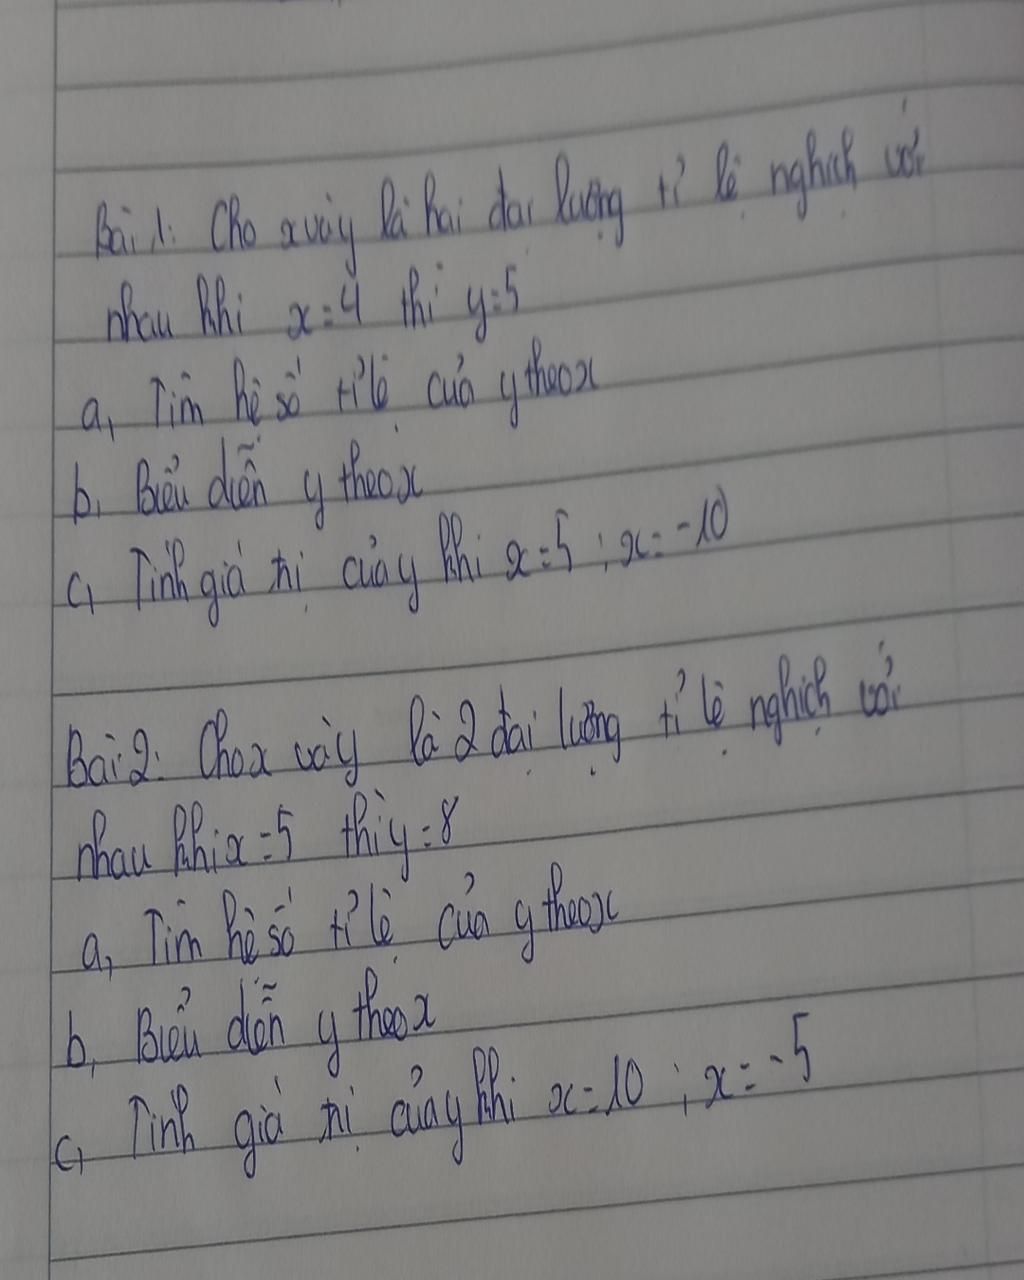 Bài 1: Cho x và y là hai đại lượng tỉ lệ nghịch với
nhau khi x=4 thì y=5
a, Tìm hệ số tỉ lệ của y theo x
b, Biểu diễn y theo x
c, Tính giá trị của y khi x=5 ; x=-10
Bài 2: Cho x và y là 2 đại lượng tỉ lệ nghịch với
nhau khi x=5 thì y=8
a, Tìm hệ số tỉ lệ của y theo x
b, Biểu diễn y theo x
c, Tính giá trị của y khi x=10 ; x=-5